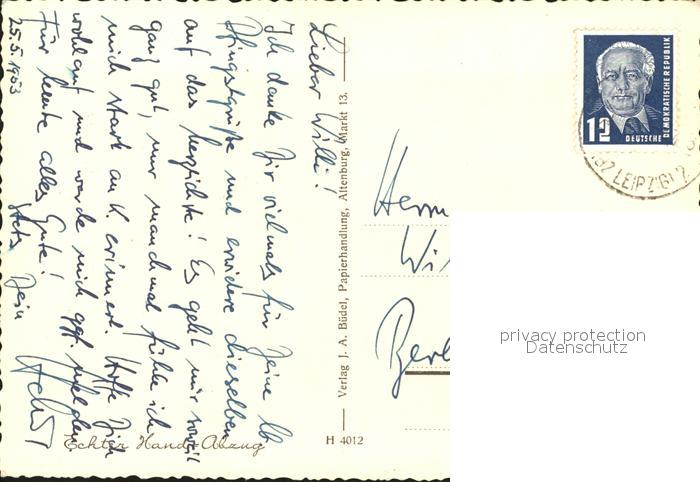 25.5.1953
Lieber Willi!
Ich danke Dir vielmals für Deine lb
Pfingstgrüße und erwidere dieselben
auf das herzlichste! Es geht mir soweit
ganz gut, nur manchmal fühle ich
mich stark an K. erinnert. Hoffe Dich
wohlauf und werde mich ggf melden.
Für heute alles Gute!
Stets Dein
Echter Hand-Abzug
Verlag J. A. Büdel, Papierhandlung, Altenburg, Markt 13.
H 4012
12
DEUTSCHE
DEMOKRATISCHE REPUBLIK
LEIPZIG
Herrn
Wi
Berl
privacy protection
Datenschutz